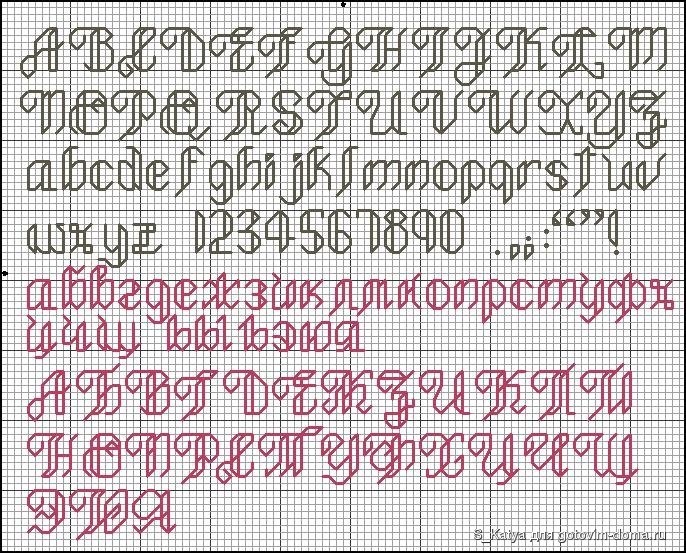 A B C D E F G H I J K L M
N O P Q R S T U V W X Y Z
a b c d e f g h i j k l m n o p q r s t u v
w x y z 1 2 3 4 5 6 7 8 9 0 . , „ : “ ” !
а б в г д е ж з й к л м н о п р с т у ф х
ц ч щ ъ ы ь э ю я
А Б В Г Д Е Ж З И К Л М
Н О П Р С Т У Ф Х Ц Ч Щ
Э Ю Я
S_Katya для gotovim-doma.ru